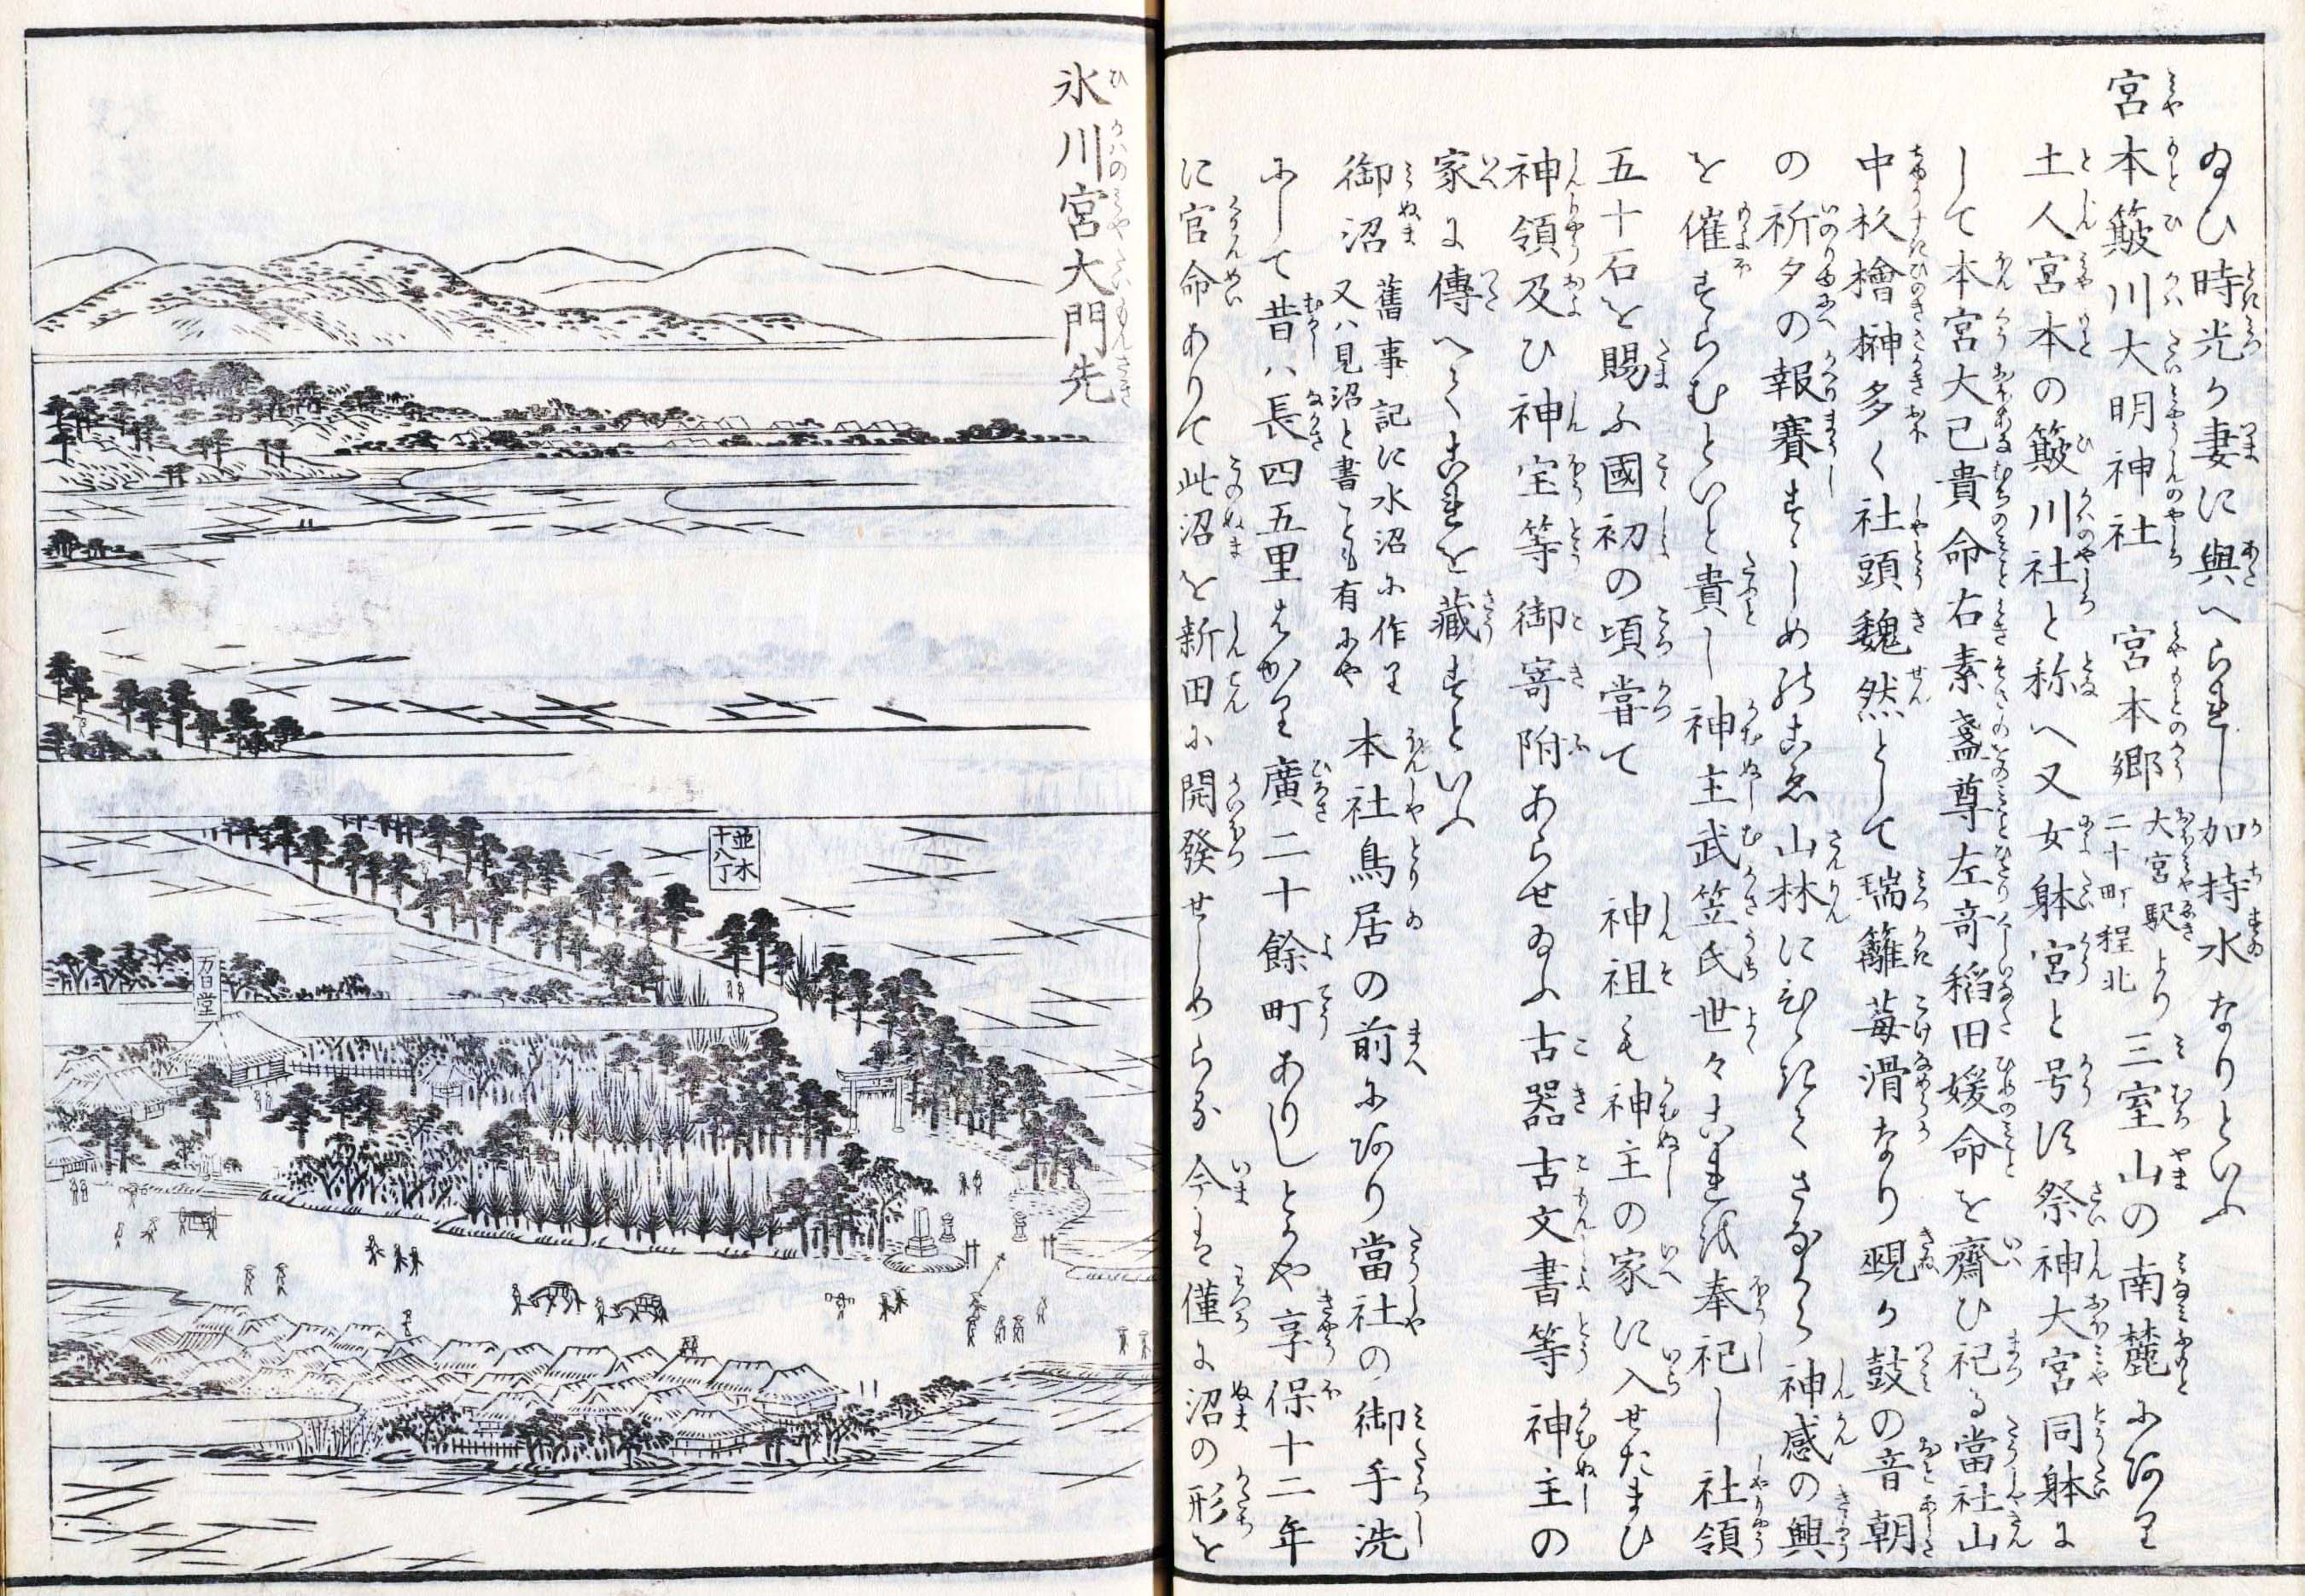 ゐひ時光り妻に與へられし加持水なりといふ
宮本簸川大明神社 宮本郷 大宮駅より
二十町程北
三室山の南麓に阿り
土人宮本の簸川社と称へ又女躰宮と号す祭神大宮同躰に
して本宮大己貴命右素盞尊左竒稲田媛命を齋ひ祀る當社山
中杦檜榊多く社頭魏然として瑞籬苺滑なり覡か鼓の音朝
の祈夕の報賽すゝしめ
山林に
神感の興
を催すらむといと貴し 神主武笠氏世々これ
奉祀し 社領
五十石を賜ふ國初の頃嘗て 神祖も神主の家に入せたまひ
神領及ひ神宝等御寄附あらせゐふ古器古文書等神主の
家に傳へてこれを藏すといふ
御沼 舊事記に水沼に作り
又ハ見沼と書ことも有にや
本社鳥居の前に阿り當社の御手洗
にして昔ハ長四五里はかり廣二十餘町ありしとかや享保十二年
に官命ありて此沼を新田に開發せしめらる今は僅に沼の形を
氷川宮大門先
並木
十八丁
万日堂